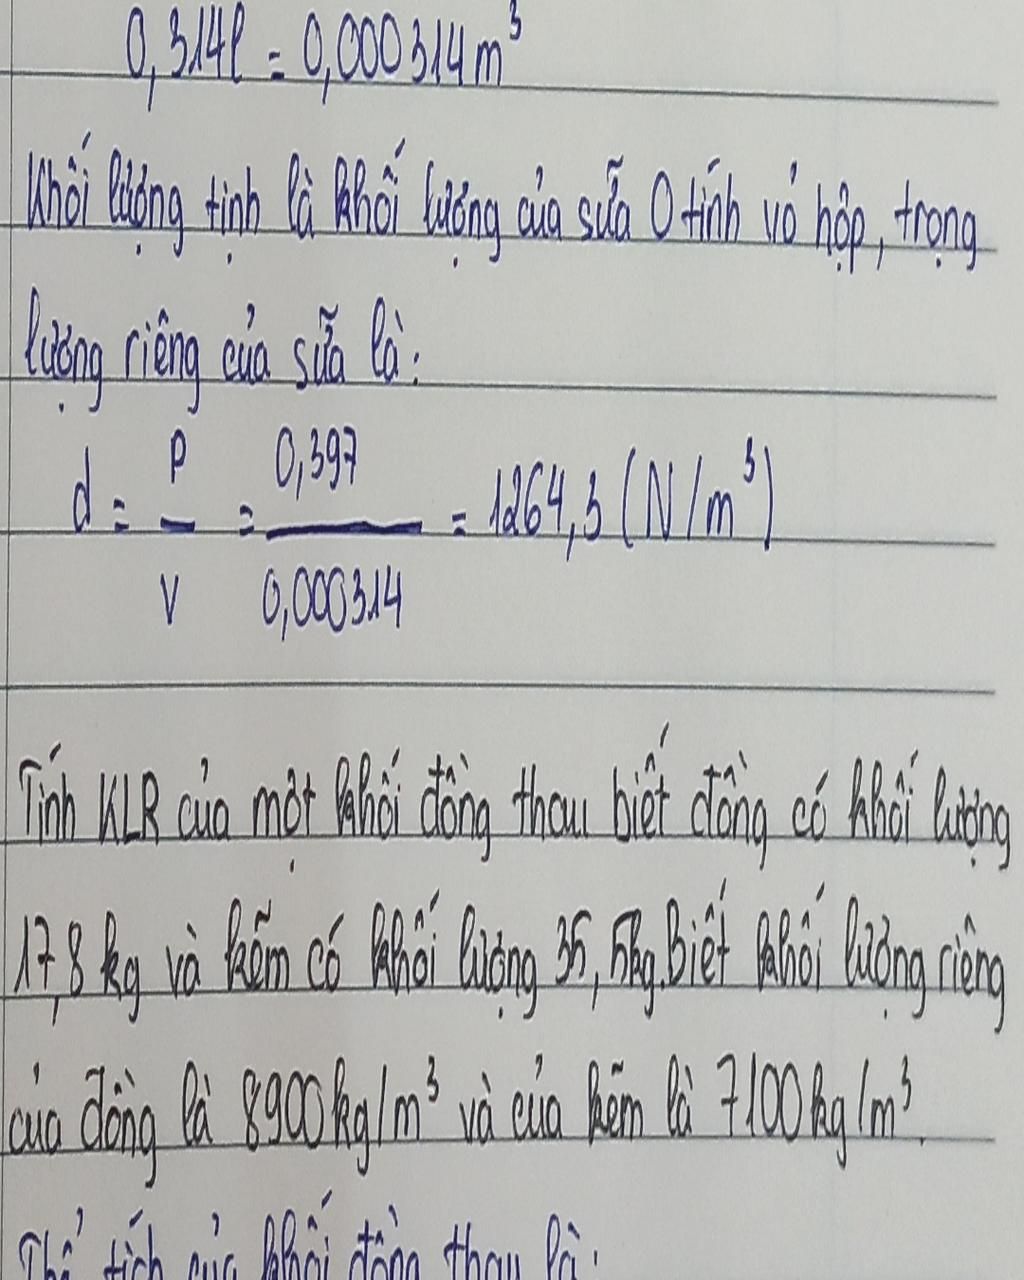 0,314l = 0,000314m³
Khối lượng tịnh là khối lượng của sữa 0 tính vỏ hộp, trọng
lượng riêng của sữa là:
d = P/V = 0,397/0,000314 = 1264,3 (N/m³)
Tính KLR của một khối đồng thau biết đồng có khối lượng
17,8 kg và kẽm có khối lượng 35,5kg. Biết khối lượng riêng
của đồng là 8900kg/m³ và của kẽm là 7100kg/m³.
Thể tích của khối đồng thau là: